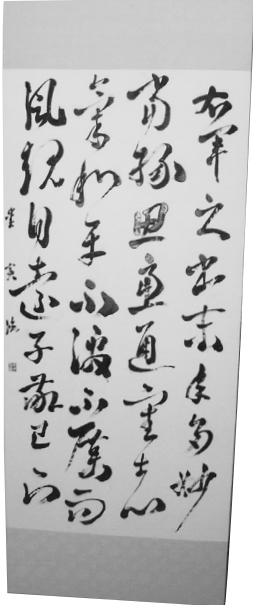 右軍之書末年多妙
當緣思慮通審志
氣和平不激不厲而
風規自遠子敬已下